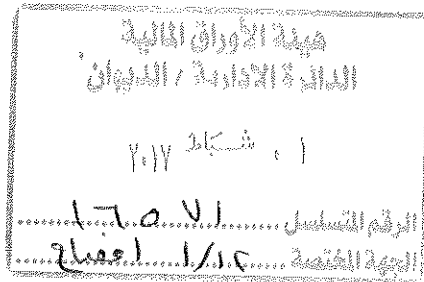 هيئة الأوراق المالية
الدائرة الادارية / الديوان
٠١ شباط ٢٠١٧
الرقم المتسلسل ١٦٥١٧١
الجهة المختصة ١/١٢ افصاح